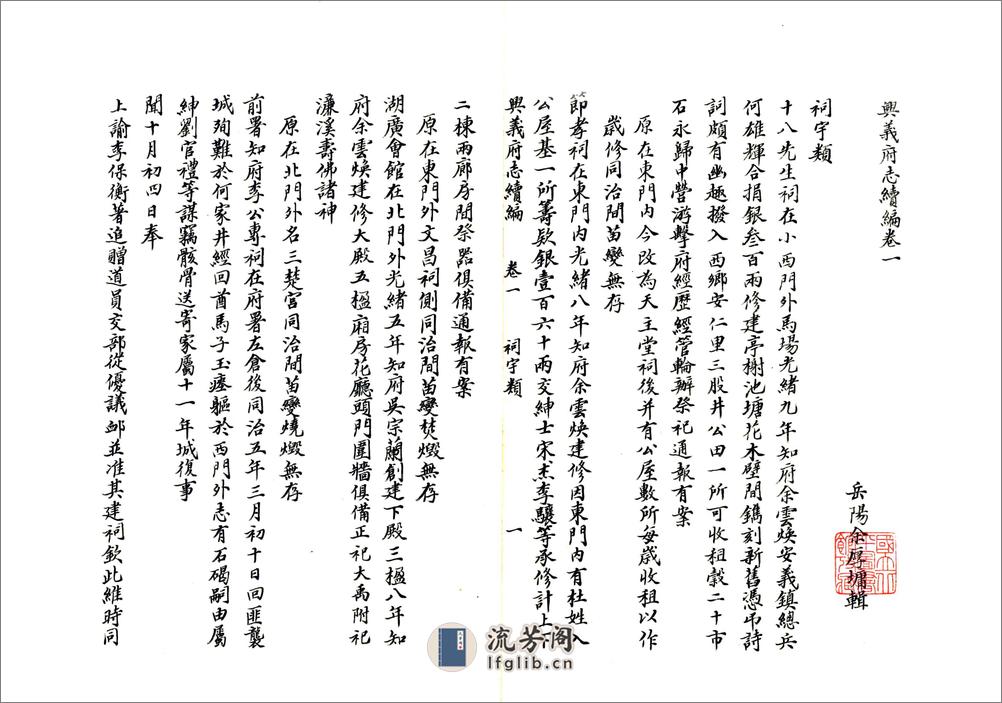 興義府志續編卷一
岳陽余厚墉輯
祠宇類
十八先生祠在小西門外馬場光緒九年知府余雲煥安義鎮總兵
何雄輝合捐銀叁百兩修建亭榭池塘花木壁間鐫刻新舊憑吊詩
詞頗有幽趣撥入西鄉安仁里三股井公田一所可收租穀二十市
石永歸中營游擊府經歷經管輪辦祭祀通報有案
原在東門內今改為天主堂祠後并有公屋數所每歲收租以作
歲修同治間苗變無存
節孝祠在東門內光緒八年知府余雲煥建修因東門內有杜姓入
公屋基一所籌欵銀壹百六十兩交紳士宋杰李驤等承修計上下
興義府志續編 卷一 祠宇類 一
二棟兩廊房間祭器俱備通報有案
原在東門外文昌祠側同治間苗變焚燬無存
湖廣會館在北門外光緒五年知府吳宗蘭創建下殿三楹八年知
府余雲煥建修大殿五楹廂房花廳頭門圍牆俱備正祀大禹附祀
濂溪壽佛諸神
原在北門外名三楚宮同治間苗變燒燬無存
前署知府李公專祠在府署左倉後同治五年三月初十日回匪襲
城殉難於何家井經回酋馬子玉瘞軀於西門外志有石碣嗣由屬
紳劉官禮等謀竊骸骨送寄家屬十一年城復事
聞十月初四日奉
上諭李保衡著追贈道員交部從優議卹並准其建祠欽此維時同
流芳阁
lfglib.cn